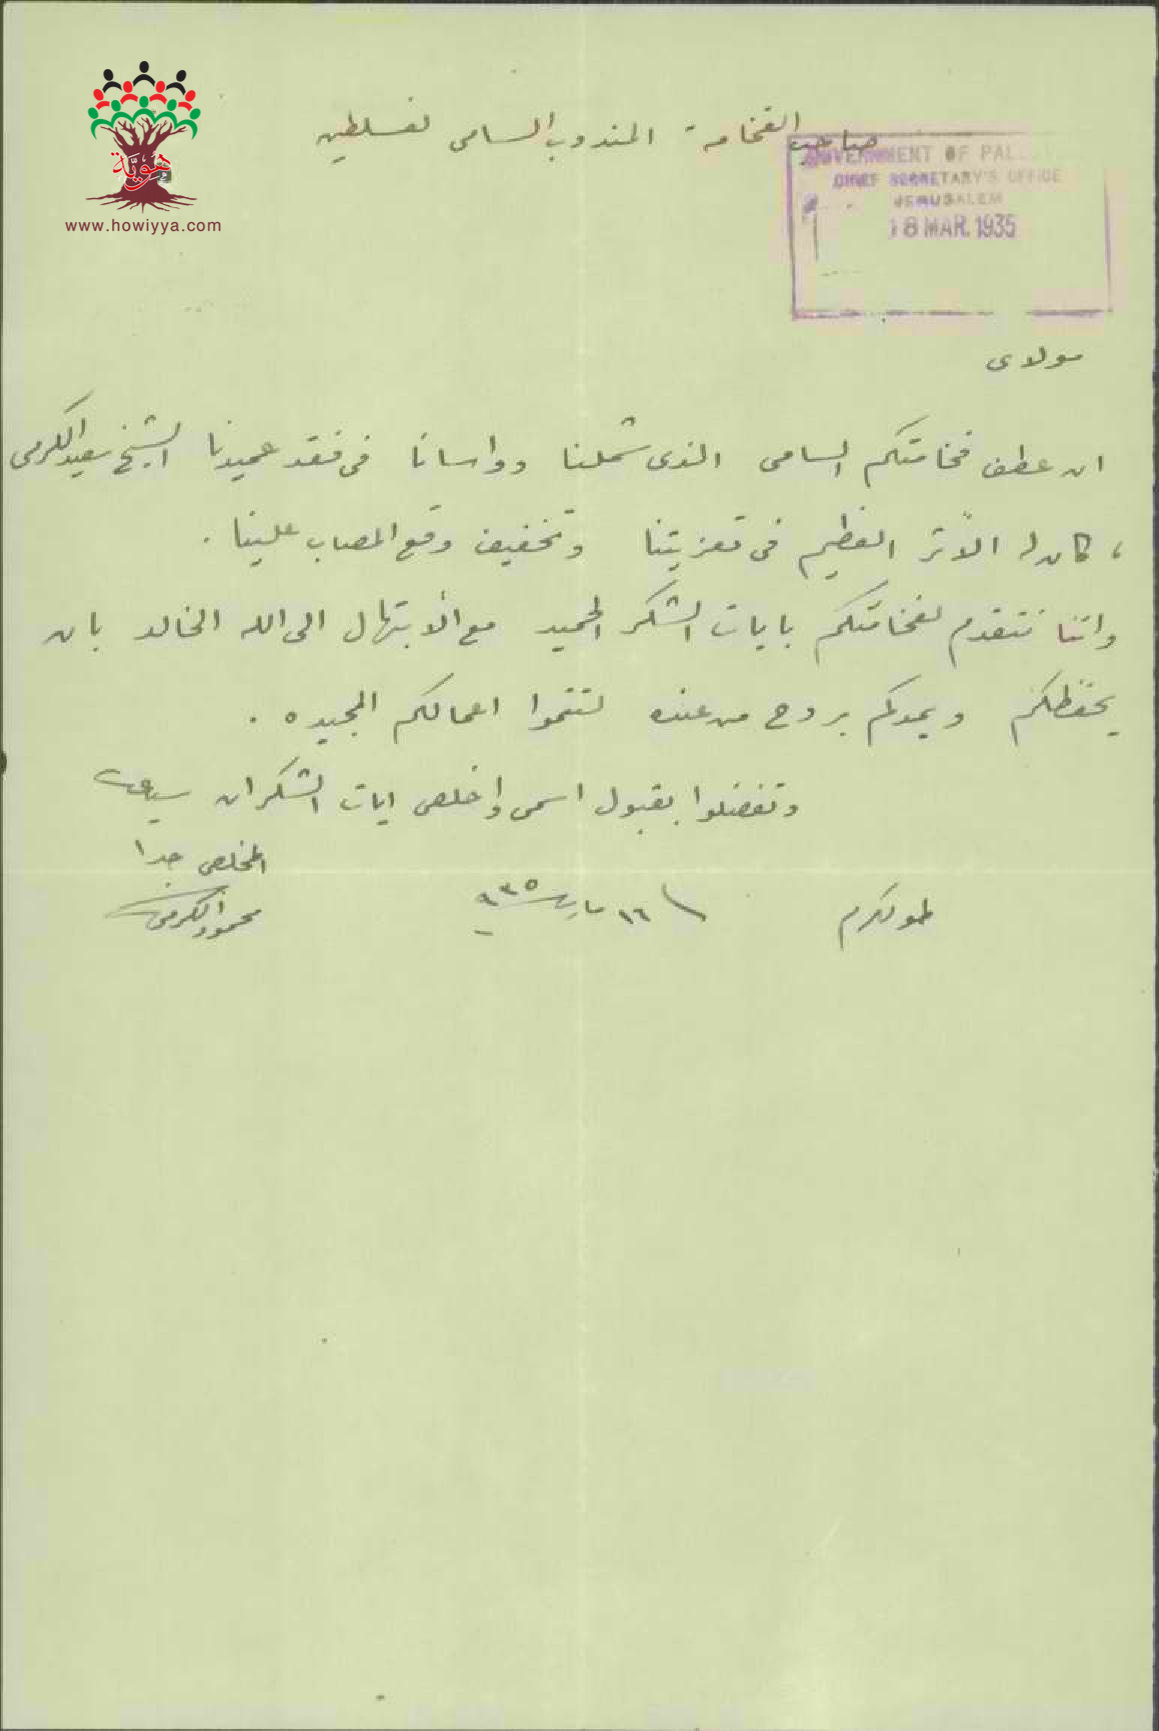 هوية
www.howiyya.com
صاحب الفخامة المندوب السامى لفسلطين
GOVERNMENT OF PAL
CHIEF SECRETARY'S OFFICE
JERUSALEM
18 MAR. 1935
مولاى
ان عطف فخامتكم السامى الذى شملنا وواسانا فى فقد عميدنا الشيخ سعيد الكرمى
، كان له الأثر العظيم فى تعزيتنا وتخفيف وقع المصاب علينا .
واننا نتقدم لفخامتكم بايات الشكر الحميد مع الأبتهال الى الله الخالد بان
يحفظكم ويمدكم بروح من عنده لتتموا اعمالكم المجيده .
وتفضلوا بقبول اسمى واخلص ايات الشكران
المخلص جدا
محمود الكرمى
طولكرم ١٦ مارس ٩٣٥